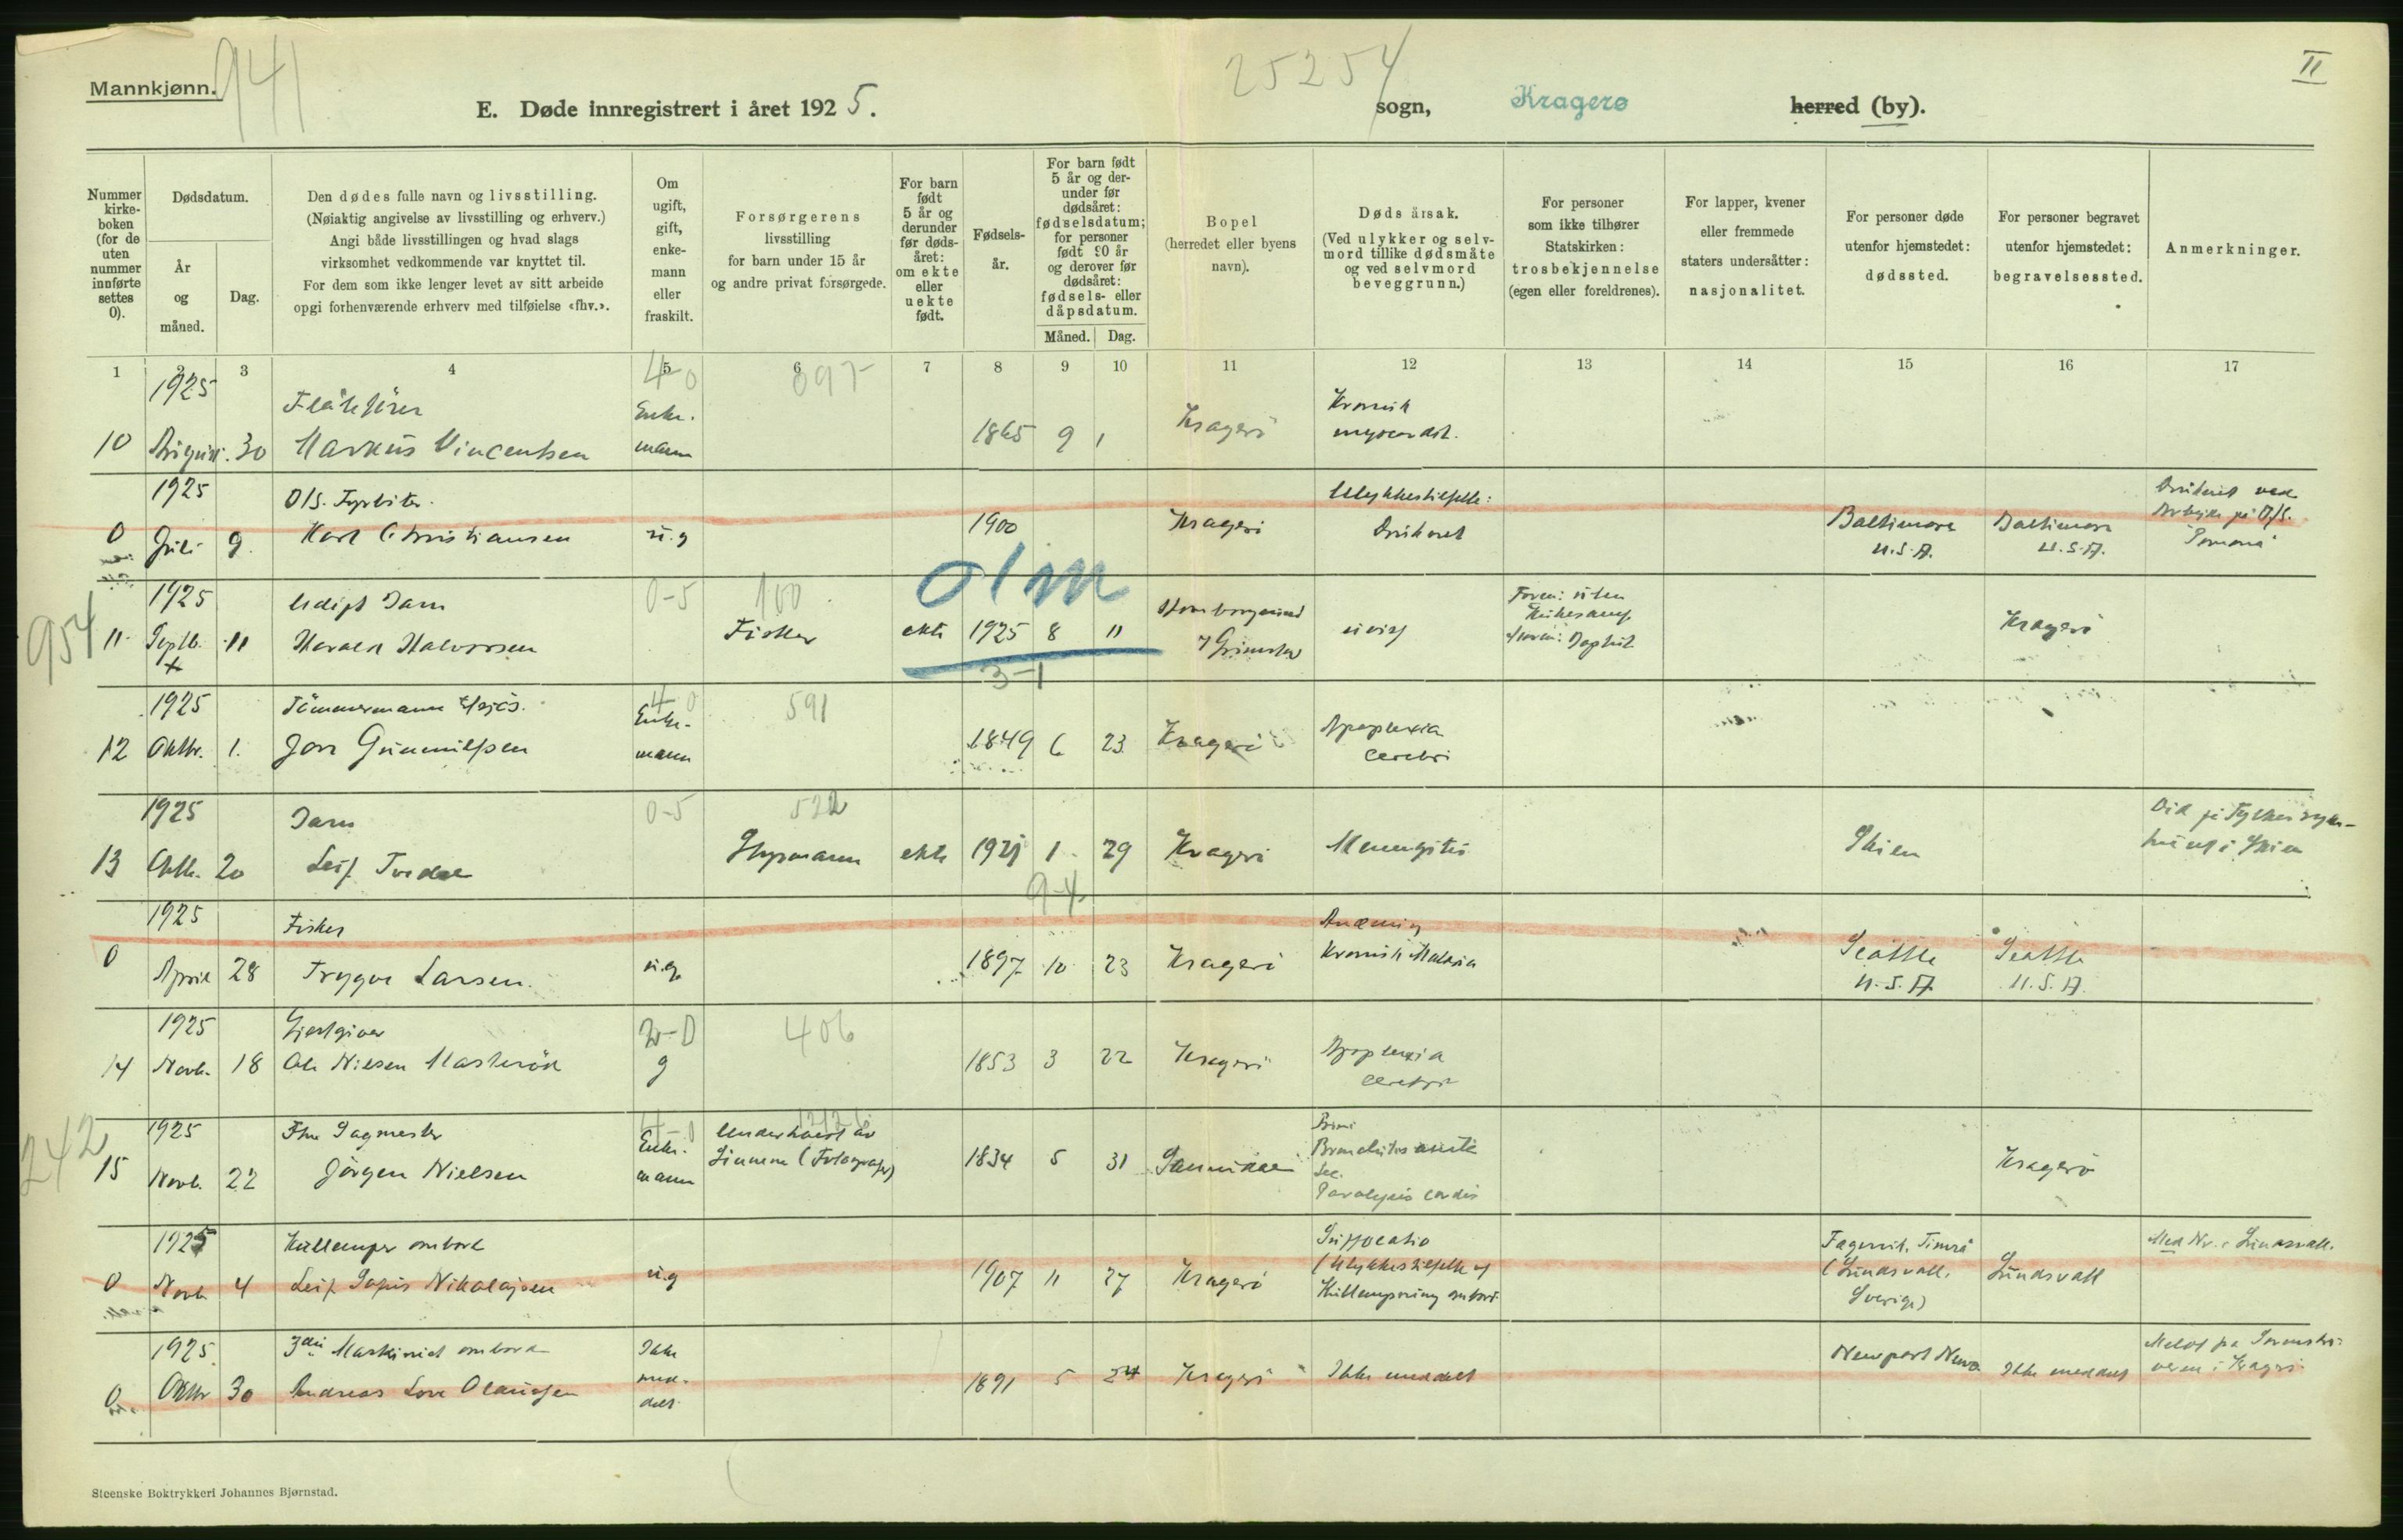 Mannkjønn.
941
25254
II
E. Døde innregistrert i året 1925.
sogn, Kragerø herred (by).
Nummer kirkeboken (for de uten nummer innførte settes 0).
Dødsdatum.
År og måned.
Dag.
Den dødes fulle navn og livsstilling.
(Nøiaktig angivelse av livsstilling og erhverv.)
Angi både livsstillingen og hvad slags
virksomhet vedkommende var knyttet til.
For dem som ikke lenger levet av sitt arbeide
opgi forhenværende erhverv med tilføielse «fhv.».
Om ugift, gift, enkemann eller fraskilt.
Forsørgerens
livsstilling
for barn under 15 år
og andre privat forsørgede.
For barn født 5 år og derunder før dødsåret: om ekte eller uekte født.
Fødselsår.
For barn født 5 år og derunder før dødsåret: fødselsdatum; for personer født 90 år og derover før dødsåret: fødsels- eller dåpsdatum.
Måned.
Dag.
Bopel
(herredet eller byens
navn).
Døds årsak.
(Ved ulykker og selv-
mord tillike dødsmåte
og ved selvmord
beveggrunn.)
For personer
som ikke tilhører
Statskirken:
trosbekjennelse
(egen eller foreldrenes).
For lapper, kvener
eller fremmede
staters undersåtter:
nasjonalitet.
For personer døde
utenfor hjemstedet:
dødssted.
For personer begravet
utenfor hjemstedet:
begravelsessted.
Anmerkninger.
1 2 3 4 5 6 7 8 9 10 11 12 13 14 15 16 17
1925 4-0 097
Enke- Kronisk
10 August 30 Markus Vincentsen mann 1865 9 1 Kragerø myocardit.
1925 D/S. Fyrbøter. Ulykkestilfelle: Druknet ved
0 Juli 9. Karl Christiansen ug 1900 Kragerø Druknet Baltimore U.S.A. Baltimore U.S.A. Arbeide på D/S.
olm
954
1925 Udøpt Barn 0-5 100
11 Septb. 11 Harald Halvorsen Fisker ekte 1925 8 11 Grimstad uviss Kragerø
3-1
1925 Tømmermann 4-0 591
12 Oktbr. 1. Jon Gunnulfsen Enke-mann 1849 6 23 Kragerø Apoplexia cerebri
1925 Barn 0-5 522
13 Oktb. 20 Leif Tvedde ekte 1921 1 29 Kragerø Meningitis Skien Død på Fylkessyke-
hus i Skien
9-4
1925 Fisker
0 April 28 Trygve Larsen. ug. 1897 10 23 Kragerø Kronisk Malaria Seattle U.S.A. Seattle U.S.A.
1925 Gjestgiver 2-0 406
14 Novb. 18 Ole Nilsen g 1853 3 22 Kragerø Apoplexia cerebri
242
1925 Fhv Sagmester 4-0 Underholdt av
15 Novb. 22 Jörgen Nielsen Enke-mann Sönnene (Fotografer) 1834 5 31 Sannidal Bronchitis acuta
Sec. Paralysis cordis Kragerø
1925 Kullemper ombord Suffocatio
0 Novb 4 Leif Nikolajsen ug 1907 11 27 Kragerø (Ulykkestilfelle Kullempning ombord Fagervik, Timrå (Sundsvall, Sverige) Sundsvall
1925 3die Maskinist ombord Ikke
0 Oktbr 30 Andreas Olaussen med-delt 1891 5 24 Kragerø Ikke meddelt Newport News Ikke meddelt i Kragerø
Steenske Boktrykkeri Johannes Bjørnstad.